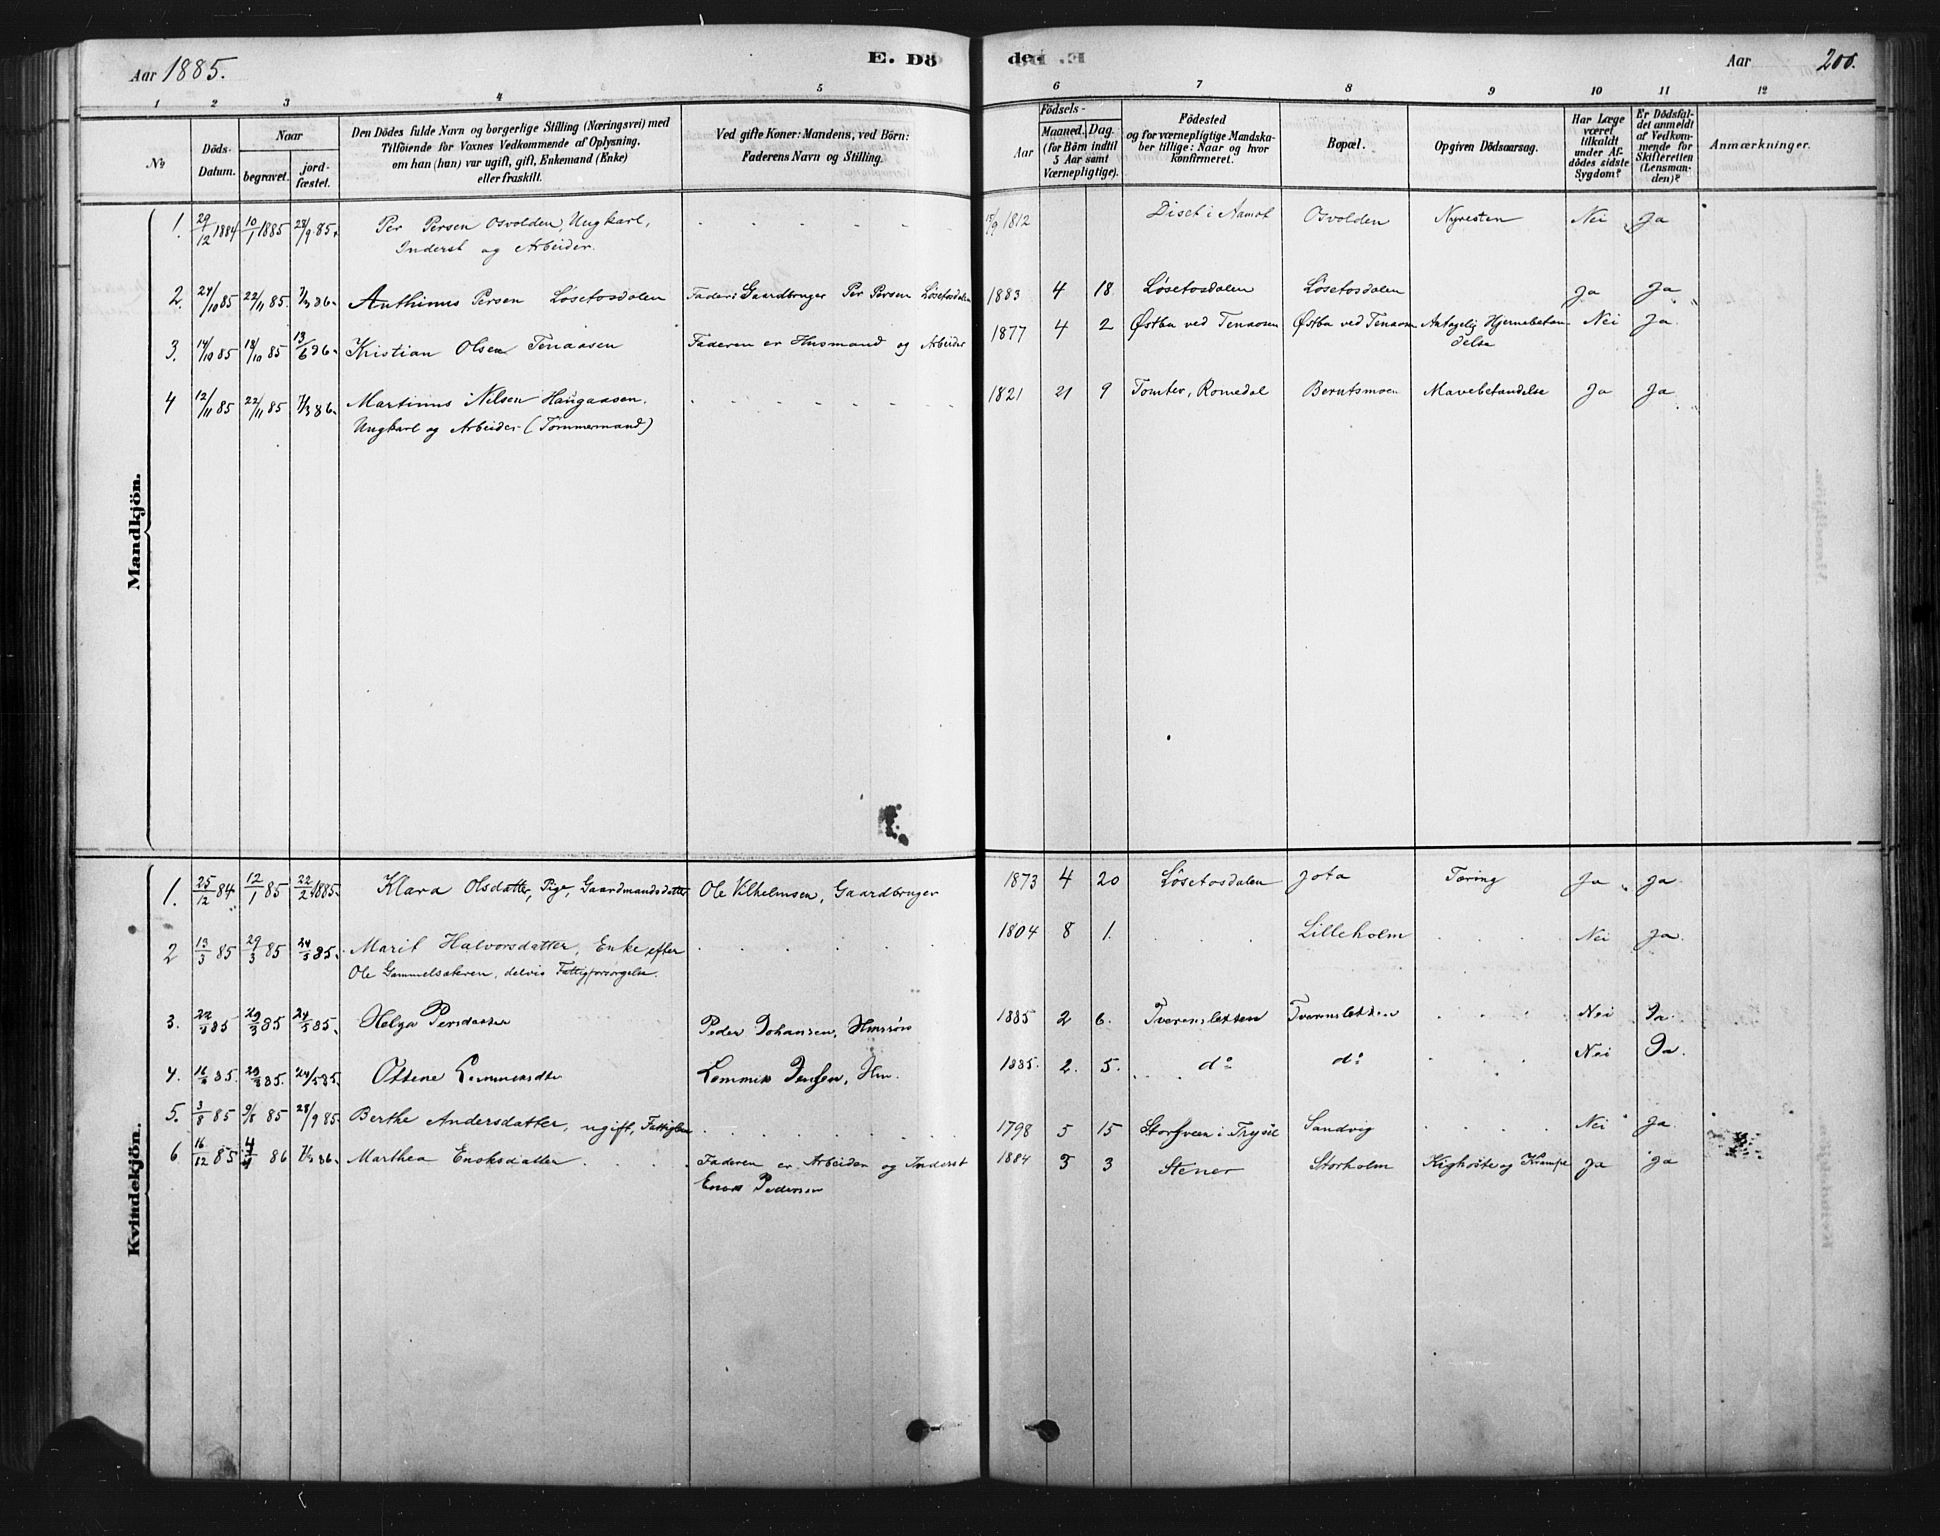 Aar 1885.
E. Dö
de
Aar
200.
1 2 3 4 5 6 7 8 9 10 11 12
No
Döds-Datum.
Naar
begravet.
jordfæstet.
Den Dödes fulde Navn og borgerlige Stilling (Næringsvei) med
Tilföiende for Voxnes Vedkommende af Oplysning,
om han (hun) var ugift, gift, Enkemand (Enke)
eller fraskilt.
Ved gifte Koner: Mandens, ved Börn:
Faderens Navn og Stilling.
Aar
Födsels-
Maaned. Dag.
(for Börn indtil
5 Aar samt
Værnepligtige).
Födested
og for værnepligtige Mandska-
ber tillige: Naar og hvor
konfirmeret.
Bopæl.
Opgiven Dödsaarsag.
Har Læge
været
tilkaldt
under Af-
dödes sidste
Sygdom?
Er Dödsfal-
det anmeldt
af Vedkom-
mende for
Skifteretten
(Lensman-
den)?
Anmærkninger.
Mandkjön.
1. 29/12 1884 10/1 1885 28/9 85. Per Persen Osvolden, Ungkarl, 15/9 1812 Diset i Aamot Osvolden Nyresten Nei Ja
Inderst og Arbeider.
2. 24/10 85 22/11 85. 7/3 86. Anthinus Persen Løsetosdalen Fader: Gaardbruger Per Persen Løsetosdalen 1883 4 18 Løsetosdalen Løsetosdalen Ja Ja
3. 14/10 85 18/10 85 13/6 86. Kristian Olsen Tenaasen Faderen er Husmand og Arbeider 1877 4 2 Østbu ved Tenaasen Østbu ved Tenaasen Antagelig Hjernebetændelse Nei Ja.
4 12/11 85 22/11 85 7/3 86. Martinus Nilsen Haugaasen. 1821 21 9 Tomter, Romedal Berntsmoen Mavebetændelse Ja Ja
Ungkarl og Arbeider (Tømmermand)
Kvindekjön.
1. 25/12 84 12/1 85 22/2 1885. Klara Olsdatter, Pige, Gaardmandsdatter Ole Vilhelmsen, Gaardbruger 1873 4 20 Løsetosdalen Jota Tæring Ja Ja
2 13/3 85 29/3 85 24/5 85. Marit Halvorsdatter, Enke efter 1804 8 1. Lilleholm Nei Ja.
Ole Gammelsakeren, delvis Fattigforsørgelse.
3. 22/3 85 29/3 85 24/5 85. Helga Persdatter Peder Johansen, 1885 2 6. Tverensletten Tverensletten Nei Ja.
4. 85. 85. 24/5 85. Ottene Jensen, Hm. 1885. 2. 5. do do Nei Ja.
5. 3/8 85 9/8 85 28/9 85. Berthe Andersdatter, ugift, Fattiglem 1798 5 15 Storsveen i Trysil Sandvig Nei Ja.
6 16/12 85 86 7/3 86. Marthea Enoksdatter Faderen er Arbeider og Inderst 1884 3 Stener Storholm Kighoste og Krampe Ja Ja
Enok Pedersen